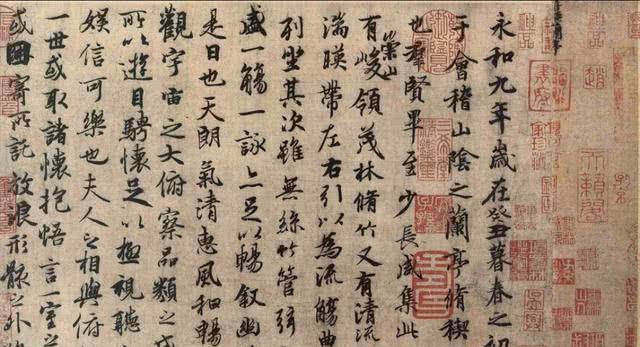 永和九年歲在癸丑暮春之初
于會稽山陰之蘭亭脩稧
也羣賢畢至少長咸集此
有崇山峻領茂林脩竹又有清流
湍暎帶左右引以為流觴曲
列坐其次雖無絲竹管弦
盛一觴一詠亦足以暢敘幽
是日也天朗氣清惠風和暢
觀宇宙之大俯察品類之
所以遊目騁懷足以極視聽
娛信可樂也夫人之相與俯
一世或取諸懷抱悟言一室之
或因寄所託放浪形骸之外